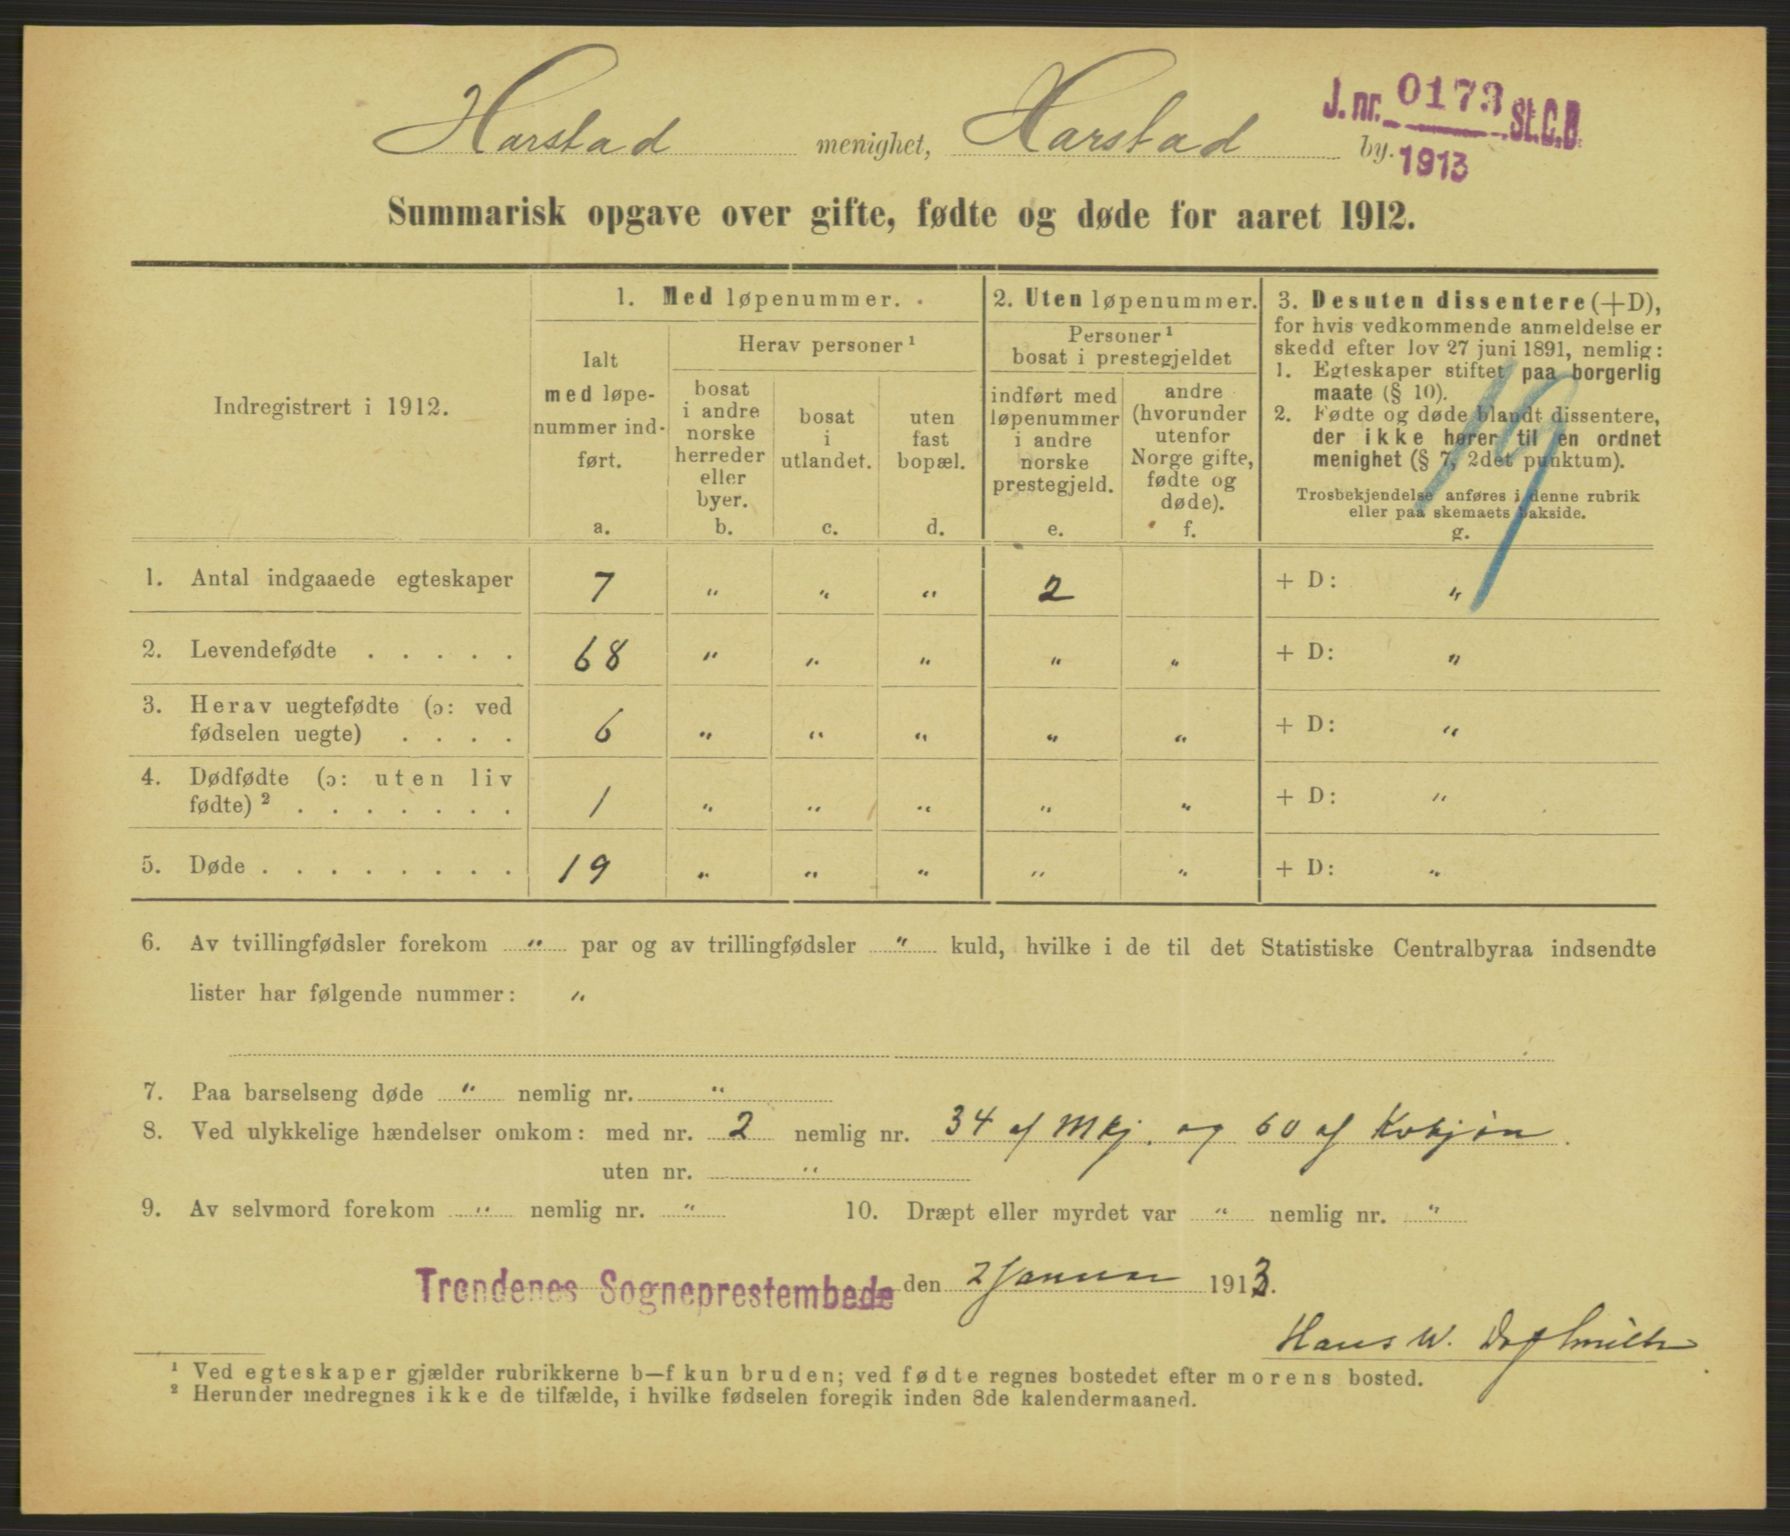 Harstad menighet, Harstad by.
J. nr. 0173 St.C.B.
1913
Summarisk opgave over gifte, fødte og døde for aaret 1912.
Indregistrert i 1912.
1. Med løpenummer.
Ialt
med løpe-
nummer ind-
ført.
a.
Herav personer ¹
bosat
i andre
norske
herreder
eller
byer.
b.
bosat
i
utlandet.
c.
uten
fast
bopæl.
d.
2. Uten løpenummer.
Personer ¹
bosat i prestegjeldet
indført med
løpenummer
i andre
norske
prestegjeld.
e.
andre
(hvorunder
utenfor
Norge gifte,
fødte og
døde).
f.
3. Desuten dissentere (+D),
for hvis vedkommende anmeldelse er
skedd efter lov 27 juni 1891, nemlig:
1. Egteskaper stiftet paa borgerlig
maate (§ 10).
2. Fødte og døde blandt dissentere,
der ikke hører til en ordnet
menighet (§ 7, 2det punktum).
Trosbekjendelse anføres i denne rubrik
eller paa skemaets bakside.
g.
1. Antal indgaaede egteskaper 7 " " " 2 + D: "
2. Levendefødte . . . . . 68 " " " " " + D: "
3. Herav uegtefødte (ɔ: ved
fødselen uegte) . . . . 6 " " " " " + D: "
4. Dødfødte (ɔ: uten liv
fødte) ² . . . . . . . 1 " " " " " + D: "
5. Døde . . . . . . . . 19 " " " " " + D: "
6. Av tvillingfødsler forekom " par og av trillingfødsler " kuld, hvilke i de til det Statistiske Centralbyraa indsendte
lister har følgende nummer: "
7. Paa barselseng døde " nemlig nr. "
8. Ved ulykkelige hændelser omkom: med nr. 2 nemlig nr. 34 af Mkj. og 60 af Kvkjøn.
uten nr. "
9. Av selvmord forekom " nemlig nr. " 10. Dræpt eller myrdet var " nemlig nr. "
Trondenes Sogneprestembede den 2 Januar 1913.
Hans W.
¹ Ved egteskaper gjælder rubrikkerne b—f kun bruden; ved fødte regnes bostedet efter morens bosted.
² Herunder medregnes ikke de tilfælde, i hvilke fødselen foregik inden 8de kalendermaaned.